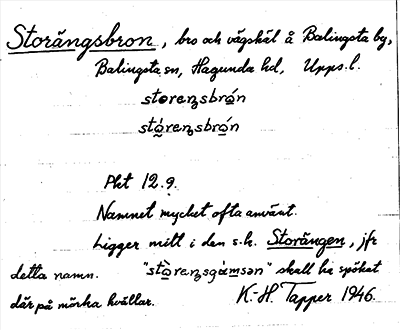 Storängsbron, bro och vägskäl å Balingsta by,
Balingsta sn, Hagunda hd, Upps. l.
storeŋsbrón
stòreŋsbrón
Pkt 12.9.
Namnet mycket ofta använt.
Ligger mitt i den s.k. Storängen, jfr
detta namn. "stòreŋsgàmsən" skall ha spökat
där på mörka kvällar. K.-H. Tapper 1946.